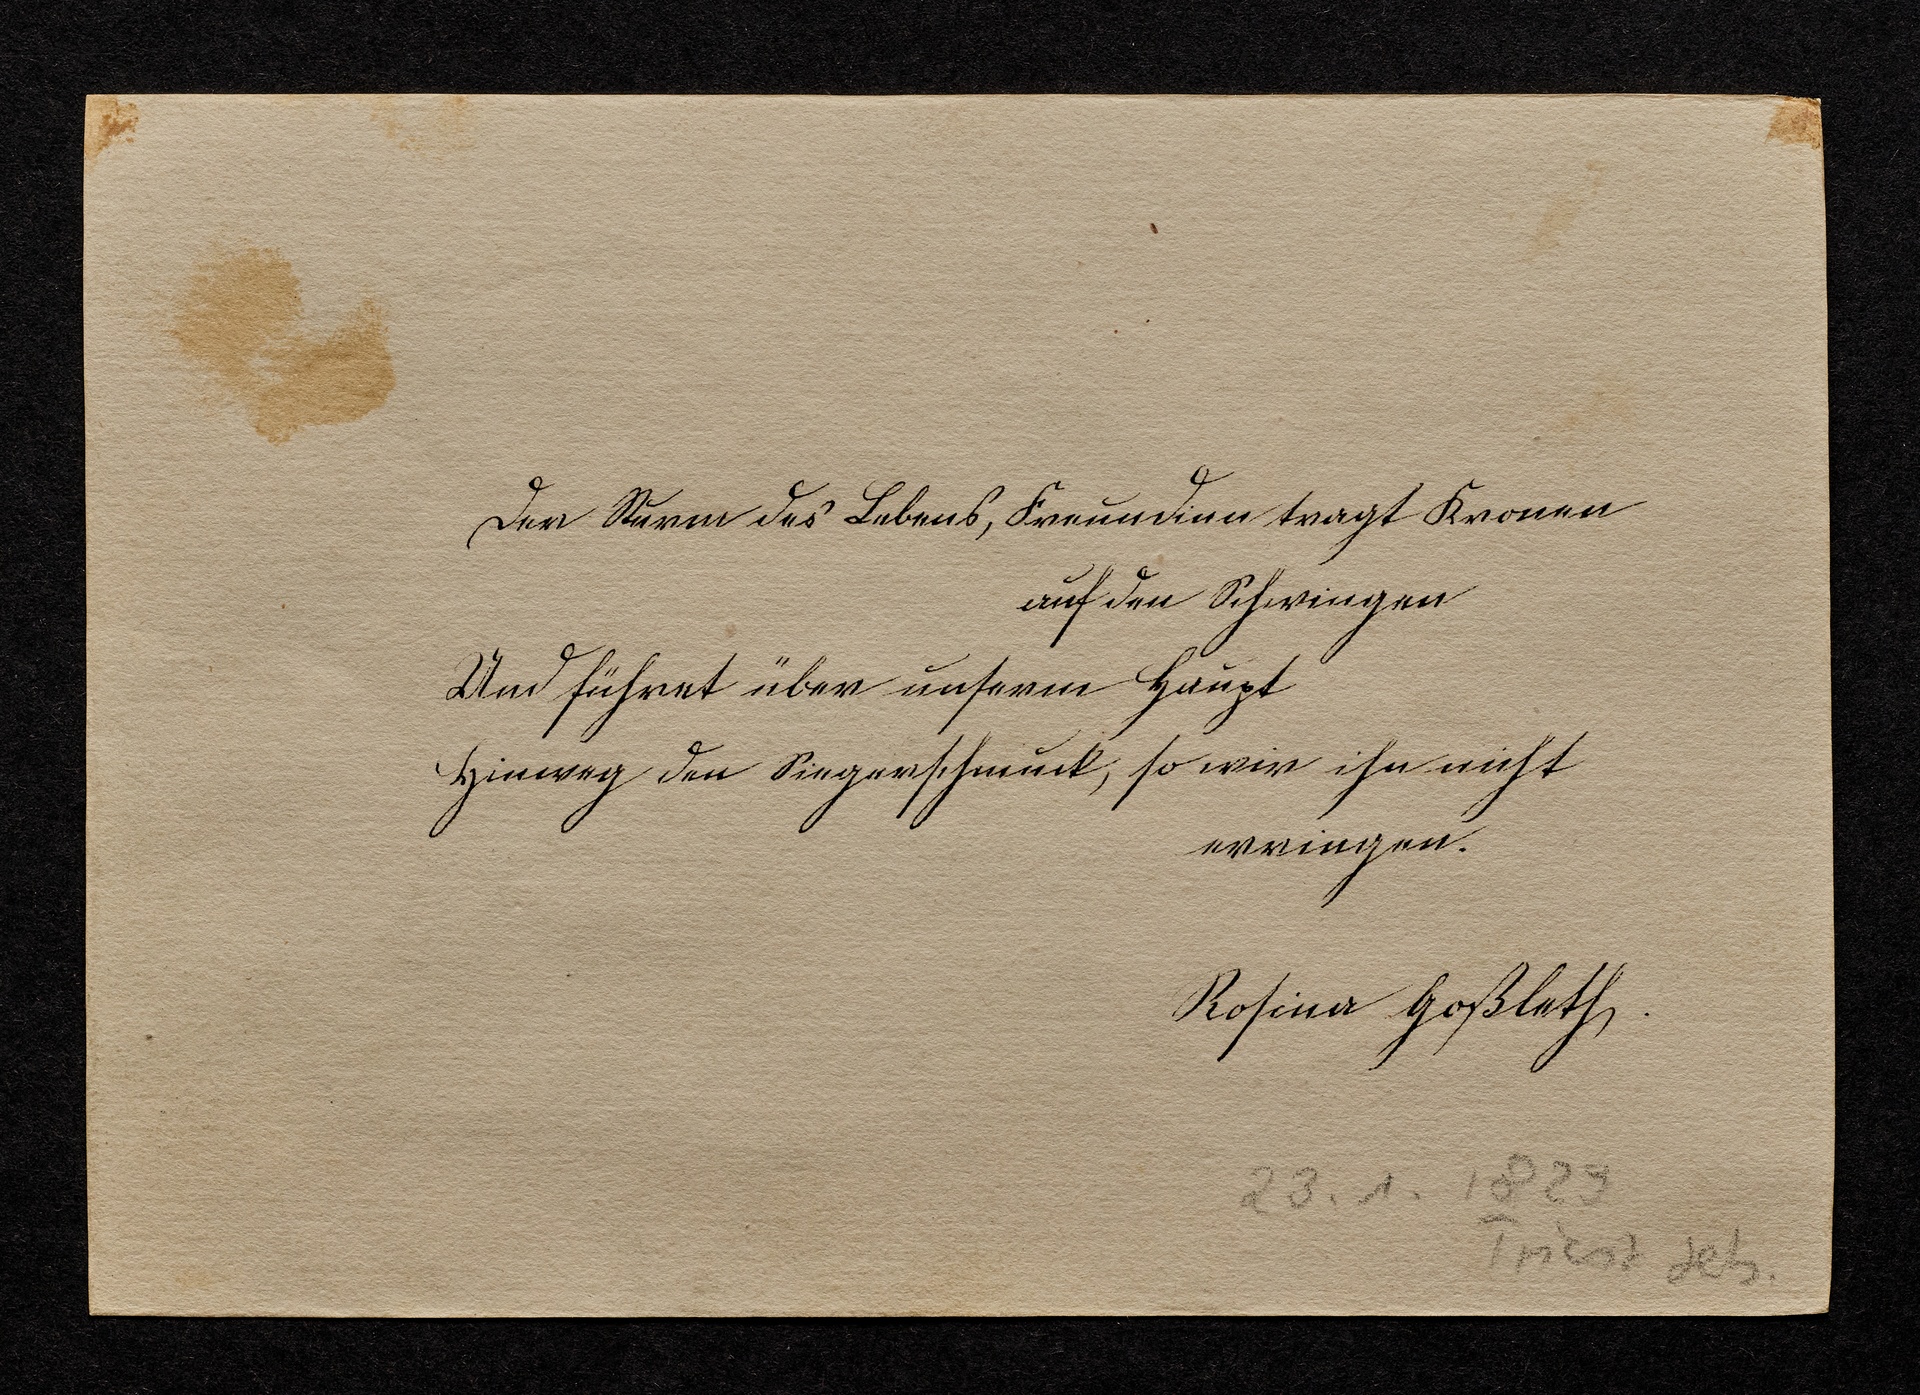 Der Sturm des Lebens, Freundinn tragt Kronen
auf den Schwingen
Und führet über unserm Haupt
Hinweg den Siegerschmuck, so wir ihn nicht
erringen.
Rosina Goßleth.
23. 1. 1829
Triest geb.